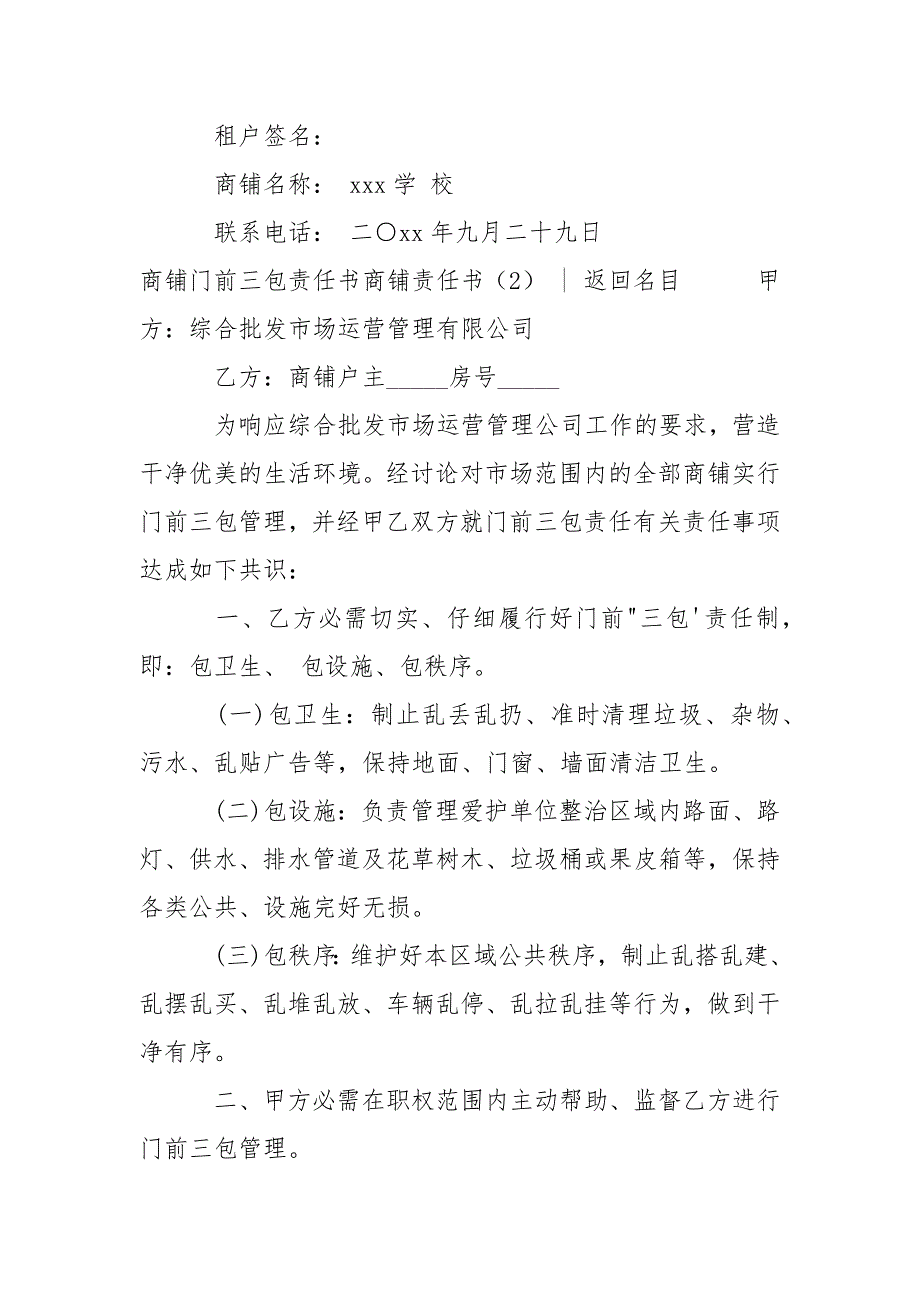 租户签名：
商铺名称： xxx学 校
联系电话： 二〇xx年九月二十九日
商铺门前三包责任书商铺责任书（2） | 返回名目 甲
方：综合批发市场运营管理有限公司
乙方：商铺户主_____房号_____
为响应综合批发市场运营管理公司工作的要求，营造
干净优美的生活环境。经讨论对市场范围内的全部商铺实行
门前三包管理，并经甲乙双方就门前三包责任有关责任事项
达成如下共识：
一、乙方必需切实、仔细履行好门前"三包'责任制，
即：包卫生、 包设施、包秩序。
(一)包卫生：制止乱丢乱扔、准时清理垃圾、杂物、
污水、乱贴广告等，保持地面、门窗、墙面清洁卫生。
(二)包设施：负责管理爱护单位整治区域内路面、路
灯、供水、排水管道及花草树木、垃圾桶或果皮箱等，保持
各类公共、设施完好无损。
(三)包秩序：维护好本区域公共秩序，制止乱搭乱建、
乱摆乱买、乱堆乱放、车辆乱停、乱拉乱挂等行为，做到干
净有序。
二、甲方必需在职权范围内主动帮助、监督乙方进行
门前三包管理。